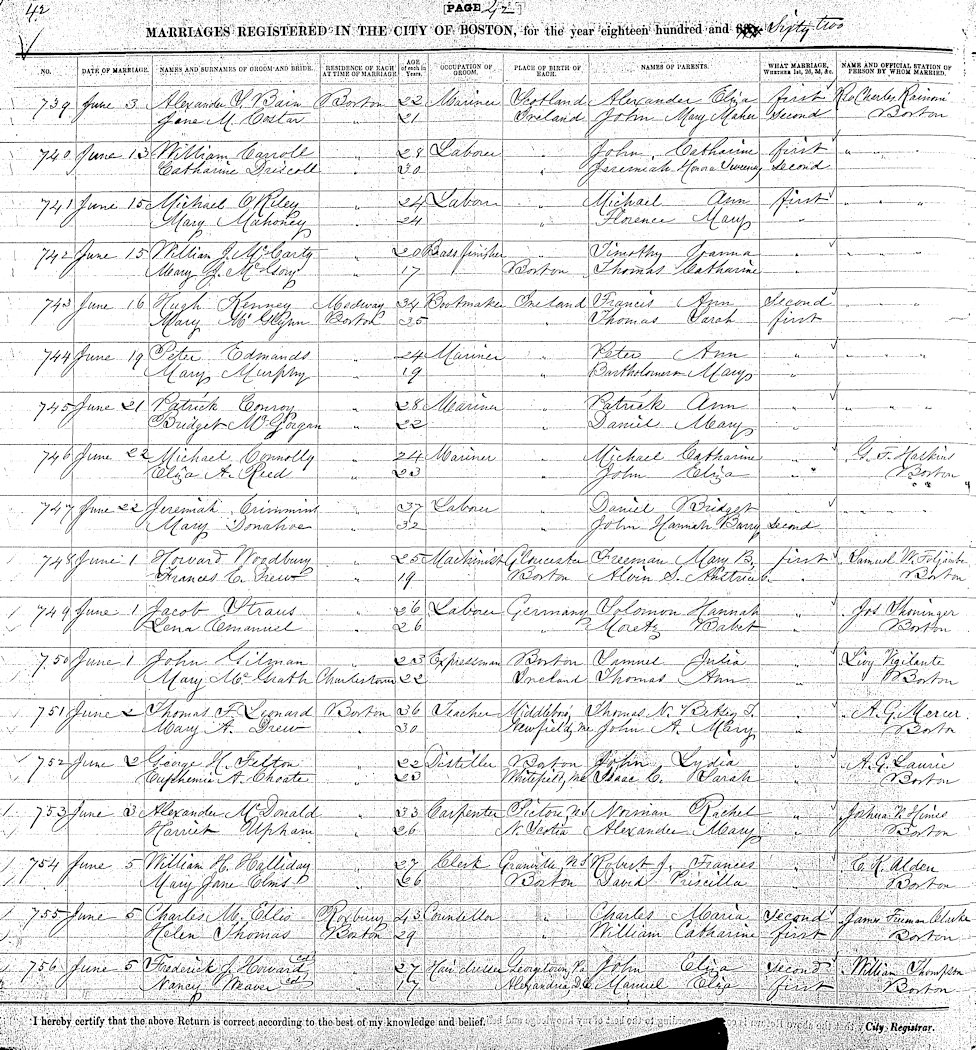 42
PAGE 42
MARRIAGES REGISTERED IN THE CITY OF BOSTON, for the year eighteen hundred and Sixty two
NO. DATE OF MARRIAGE. NAMES AND SURNAMES OF GROOM AND BRIDE. RESIDENCE OF EACH AT TIME OF MARRIAGE. AGE of each in Years. OCCUPATION OF GROOM. PLACE OF BIRTH OF EACH. NAMES OF PARENTS. WHAT MARRIAGE, Whether 1st, 2d, 3d, &c. NAME AND OFFICIAL STATION OF PERSON BY WHOM MARRIED.
739 June 3 Alexander S. Bain Boston 22 Mariner Scotland Alexander Eliza first Rev Charles
Jane M. Costar " 21 Ireland John Mary Maher Second Boston
740 June 13 William Carroll " 28 Laborer " John Catharine first " "
Catharine Driscoll " 30 " Jeremiah Honora Sweeney Second
741 June 15 Michael O'Riley " 24 Laborer " Michael Ann first " " "
Mary Mahoney " 24 " Florence Mary "
742 June 15 William J. McCarty " 20 Brass finisher " Timothy Joanna "
Mary J. " 17 Boston Thomas Catharine "
743 June 16 Hugh Kenney Medway 34 Bootmaker Ireland Francis Ann Second " "
Mary McGlynn Boston 35 " Thomas Sarah first
744 June 19 Peter Edmands " 24 Mariner " Peter Ann " " " "
Mary Murphy " 19 " Bartholomew Mary "
745 June 21 Patrick Conroy " 28 Mariner " Patrick Ann " " " "
Bridget " 22 " Daniel Mary "
746 June 22 Michael Connolly " 24 Mariner " Michael Catharine " G. F. Haskins
Eliza A. Reed " 23 " John Eliza " Boston
747 June 22 Jeremiah Crimmins " 37 Laborer " Daniel Bridget " " " "
Mary Donahoe " 32 " John Hannah Barry Second
748 June 1 Howard Woodbury " 25 Machinist Gloucester Freeman Mary B. first Samuel W.
Frances C. Drew " 19 Boston Alvin S. " Boston
749 June 1 Jacob Straus " 26 Laborer Germany Solomon Hannah " Jos. Shoninger
Lena Emanuel " 26 " Moretz Babet " Boston
750 June 1 John Gilman " 23 Expressman Boston Samuel Julia " Livy Vigilante
Mary McGrath Charlestown 22 Ireland Thomas Ann " Boston
751 June 2 Thomas F. Leonard Boston 36 Teacher Middleboro, Thomas N. Betsey T. " A. G. Mercer
Mary A. Drew " 30 Newfield, Me John A. Mary " Boston
752 June 2 George H. Felton " 22 Distiller Boston John Lydia " A. G. Laurie
Euphemia A. Choate " 23 Whitefield, Me Isaac C. Sarah " Boston
753 June 3 Alexander McDonald " 33 Carpenter Pictou, N.S Norman Rachel " Joshua V. Himes
Harriet Upham " 26 N. Scotia Alexander Mary " Boston
754 June 5 William H. Halliday " 27 Clerk Granville, N.S Robert J. Frances " E. K. Alden
Mary Jane Elms " 26 Boston David Priscilla " Boston
755 June 5 Charles M. Ellis Roxbury 43 Councellor " Charles Maria Second James Freeman Clarke
Helen Thomas Boston 29 " William Catharine first Boston
756 June 5 Frederick J. Howard cd " 27 Hair dresser Georgetown, Pa John Eliza Second William Thompson
Nancy Weaver cd " 17 Alexandria, D.C. Manuel Eliza first Boston
I hereby certify that the above Return is correct according to the best of my knowledge and belief.
City Registrar.